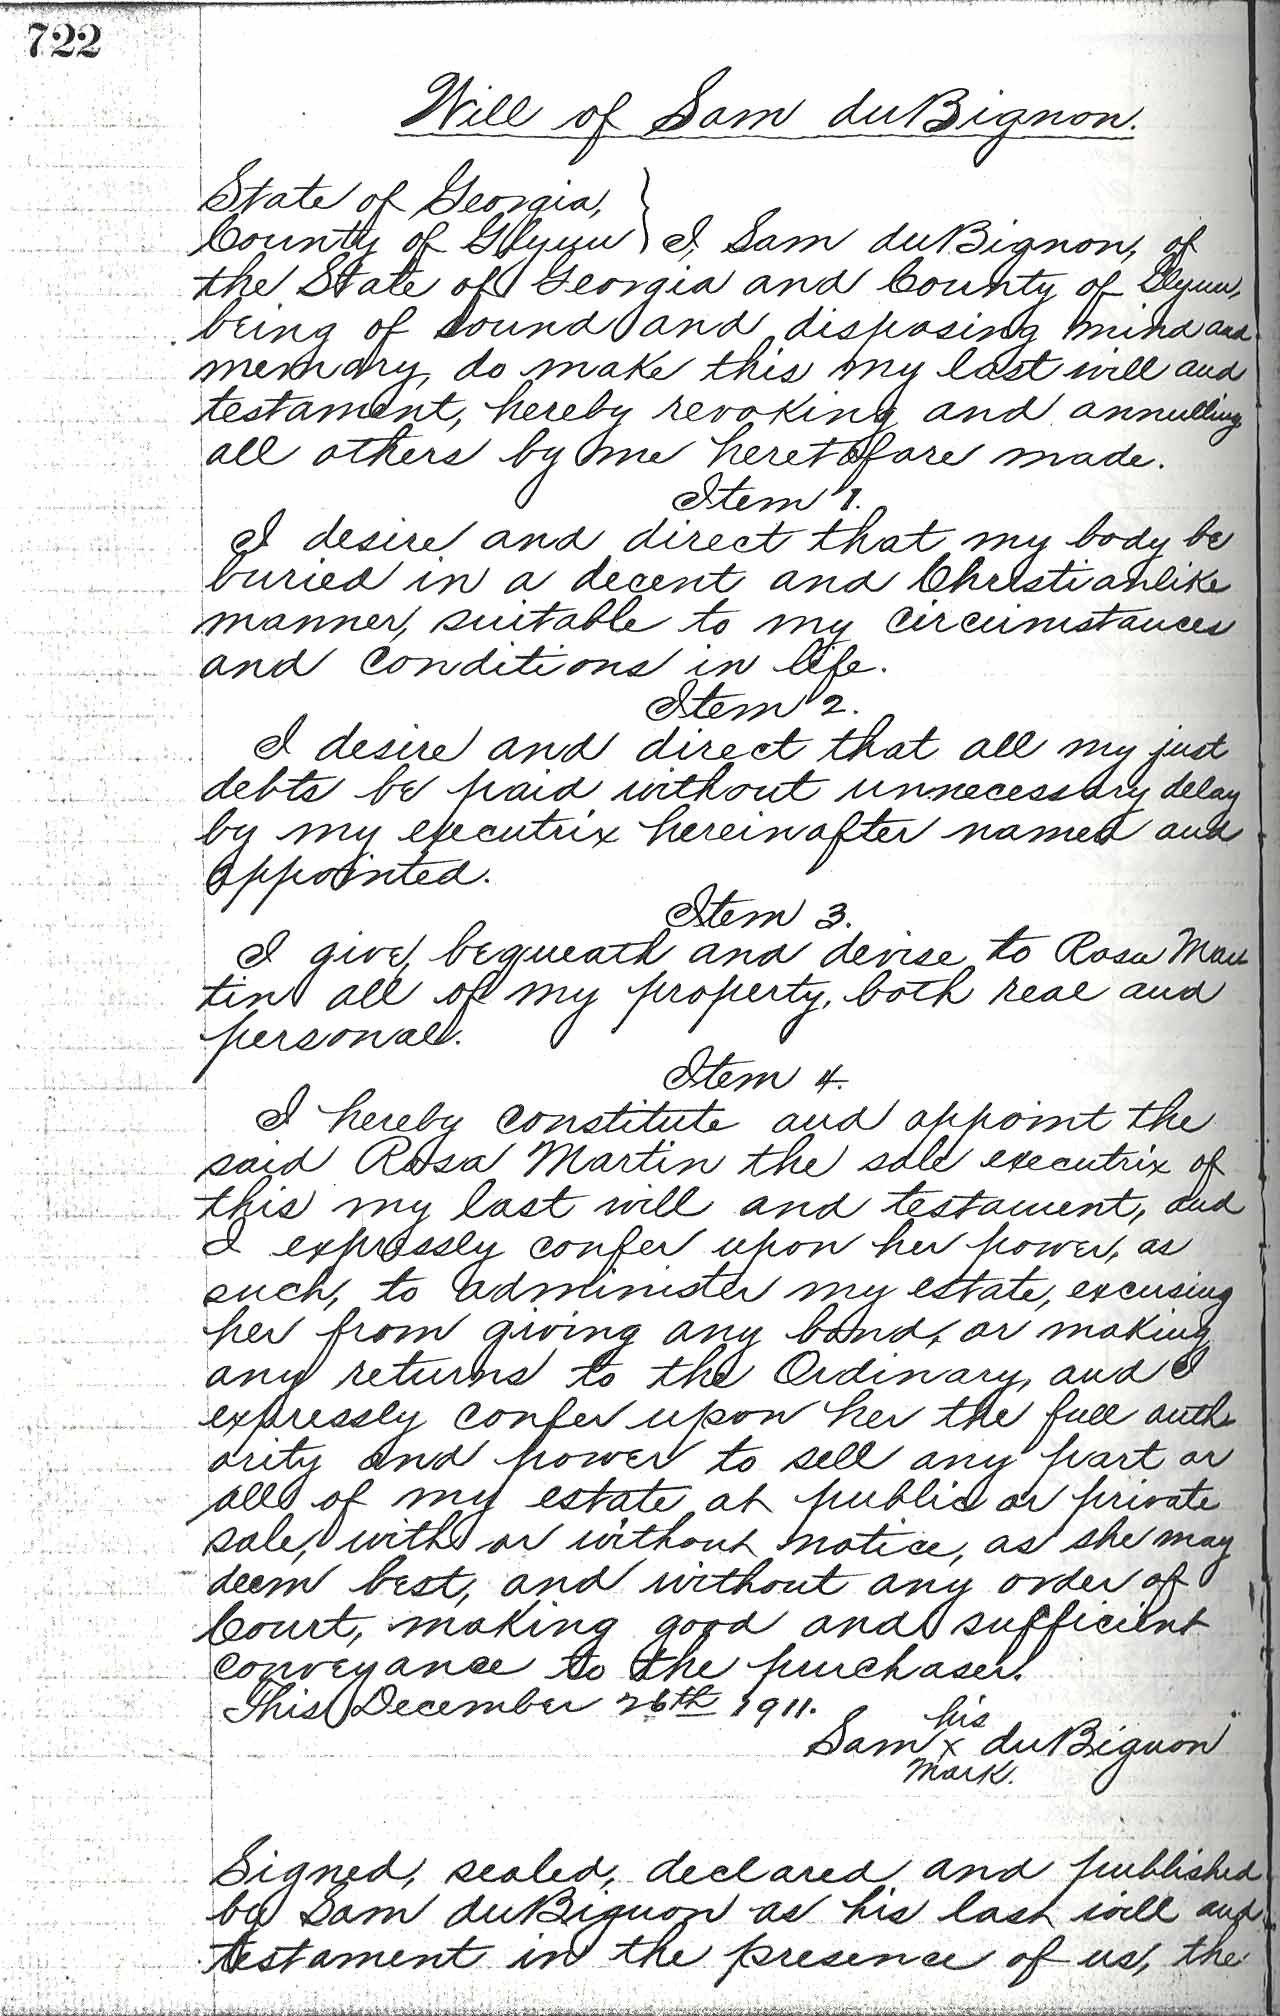 722
Will of Sam duBignon.
State of Georgia,
County of Glynn } I, Sam duBignon, of
the State of Georgia and County of Glynn,
being of sound and disposing mind and
memory, do make this my last will and
testament, hereby revoking and annulling
all others by me heretofore made.
Item 1.
I desire and direct that my body be
buried in a decent and Christianlike
manner, suitable to my circumstances
and conditions in life.
Item 2.
I desire and direct that all my just
debts be paid without unnecessary delay
by my executrix hereinafter named and
appointed.
Item 3.
I give, bequeath and devise to Rosa Mar
tin all of my property, both real and
personal.
Item 4.
I hereby constitute and appoint the
said Rosa Martin the sole executrix of
this my last will and testament, and
I expressly confer upon her power, as
such, to administer my estate, excusing
her from giving any bond, or making
any returns to the Ordinary, and I
expressly confer upon her the full auth
ority and power to sell any part or
all of my estate at public or private
sale, with or without notice, as she may
deem best, and without any order of
Court, making good and sufficient
conveyance to the purchaser.
This December 26th 1911.
his
Sam x duBignon
mark.
Signed, sealed, declared and published
by Sam duBignon as his last will and
testament in the presence of us, the